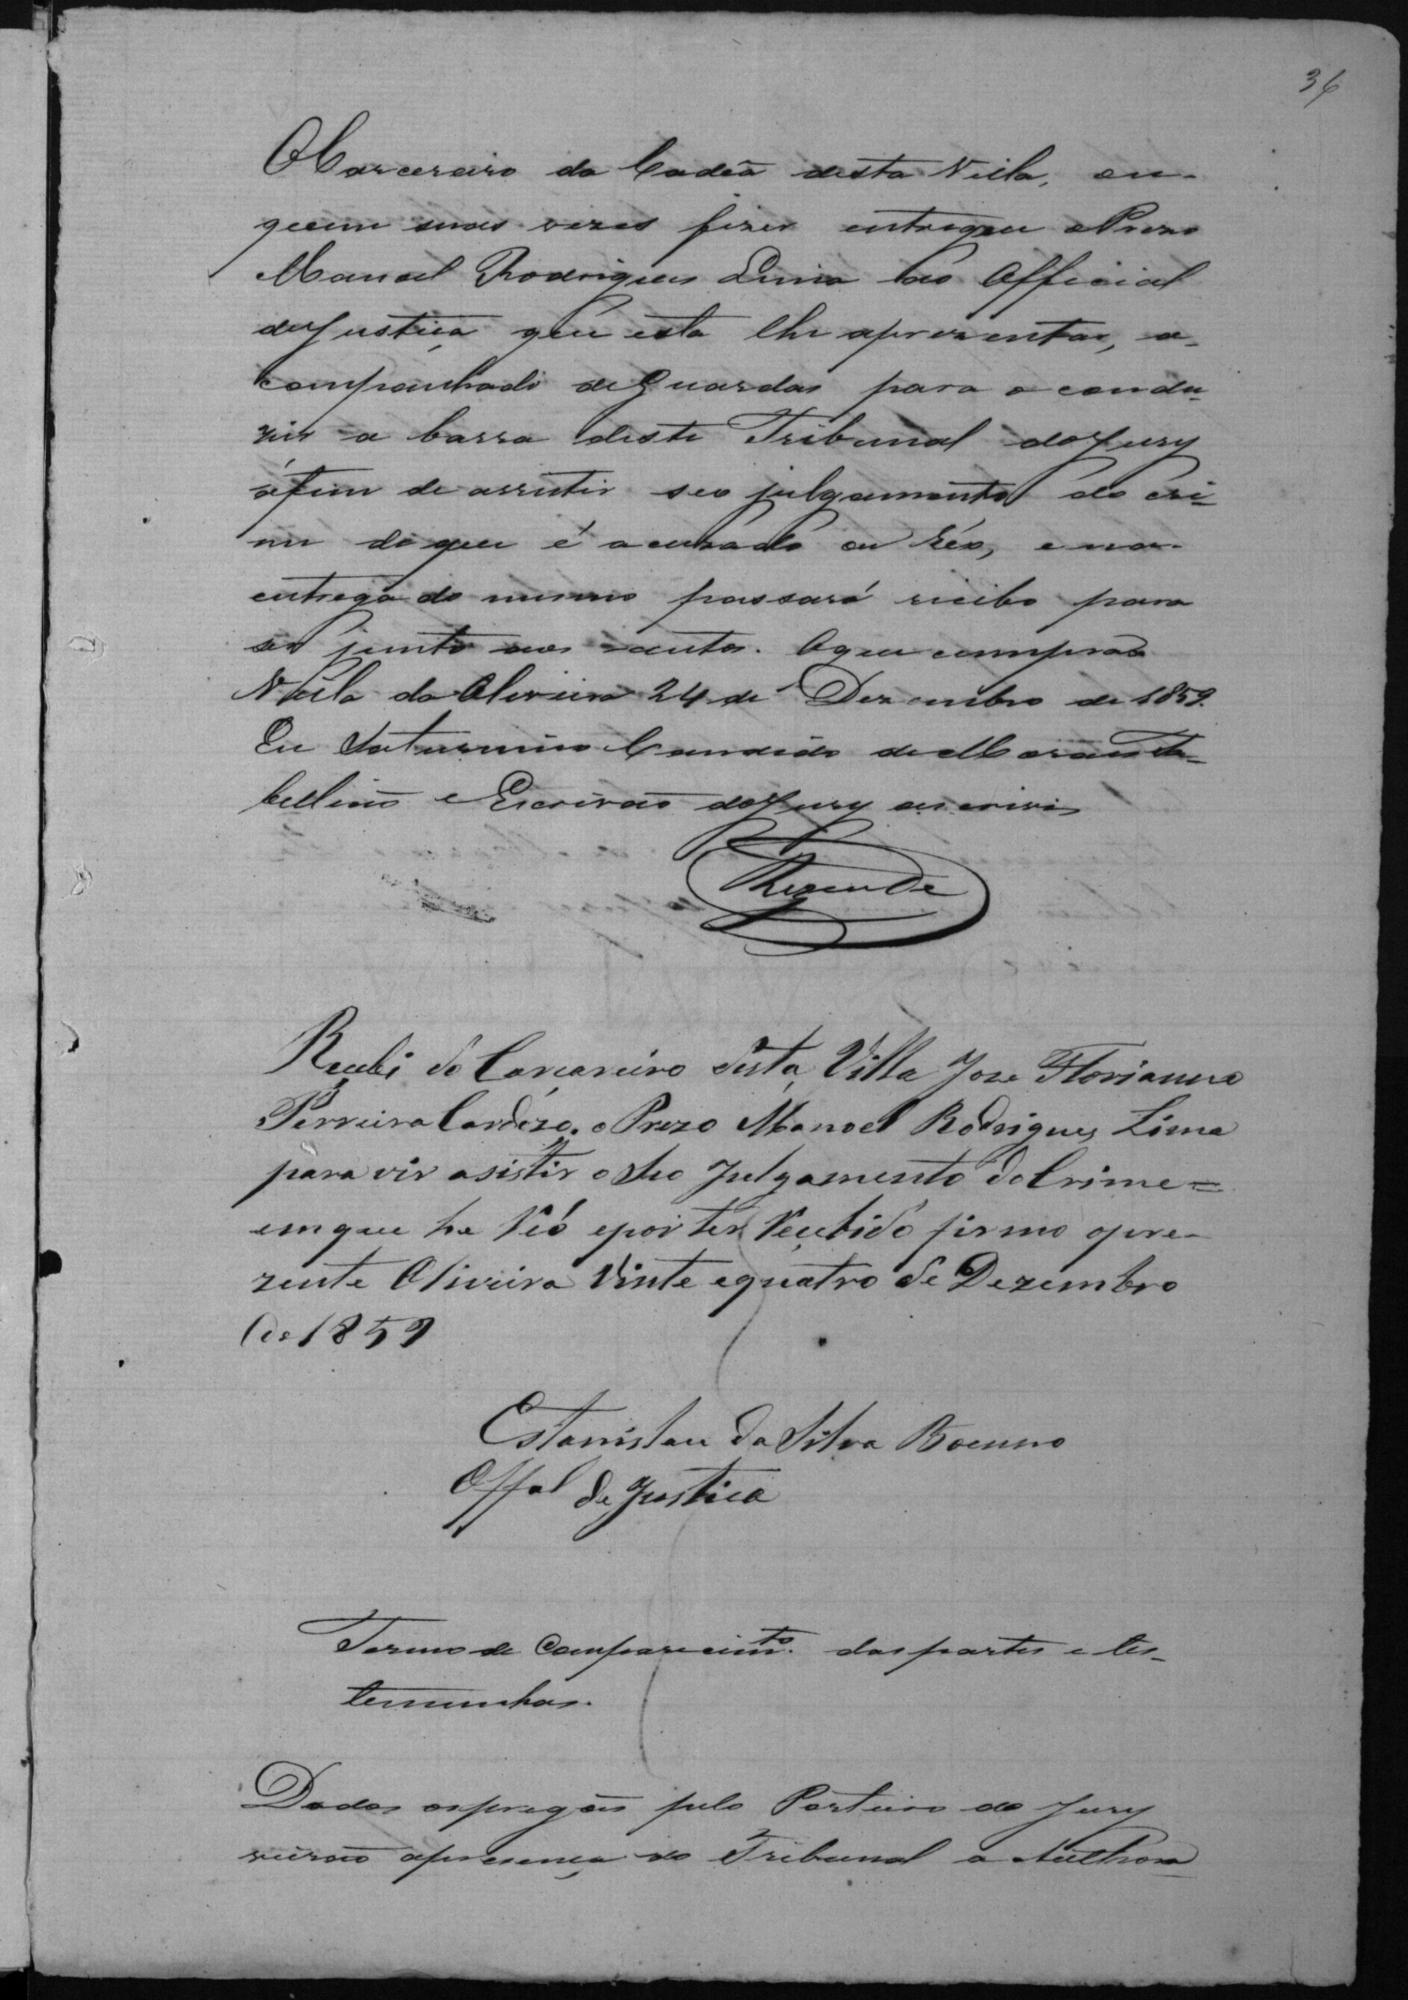 36
O Carcereiro da Cadêa desta Villa, ou
quem suas vezes fizer entregue o Prezo
Manoel Rodrigues Lima ao Official
de Justiça que esta lhe aprezentar, a-
companhado de Guardas para o condu-
zir a barra deste Tribunal do Jury
áfim de assistir seo julgamento do cri-
me de que é acuzado ou Réo, e na
entrega do mesmo passará recibo para
ser junto aos autos. O que cumprão
Villa da Oliveira 24 de Dezembro de 1859.
Eu Saturnino Candido de Moraes Ta-
bellião e Escrivão do Jury escrivi
Rezende
Recebi do Carcareiro desta Villa Joze Florianno
Perreira Cardozo. o Prezo Manoel Rodrigues Lima
para vir asistir o Seo Julgamento do Crime=
em que he Reó e por ter Recebido firmo o pre-
zente Oliveira Vinte e quatro de Dezembro
de 1859
Estanislau da Silva Boeuno
Offal de Justica
Termo de Comparecimto. das partes e tes-
temunhas.
Dados os pregões pelo Porteiro do Jury
vierão a presença do Tribunal a Authora